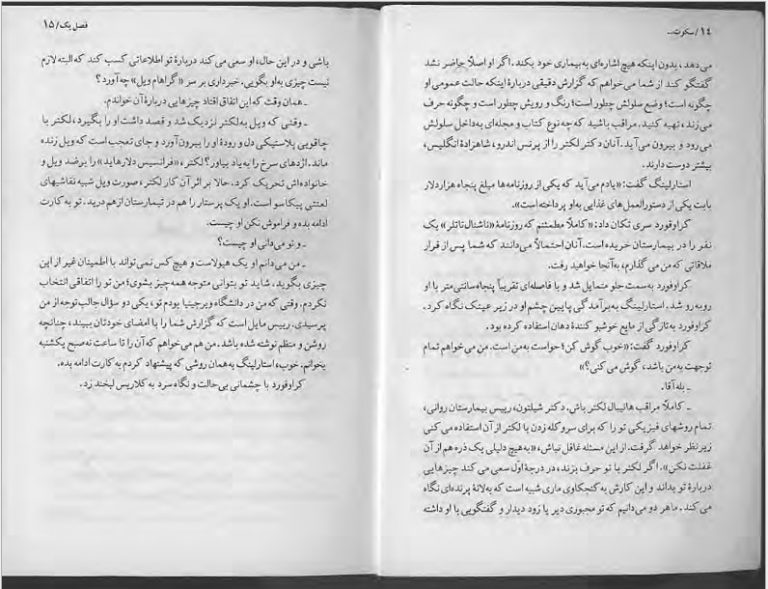 ۱۴ / سکوت...
می‌دهد، بدون اینکه هیچ اشاره‌ای به‌بیماری خود بکند. اگر او اصلاً حاضر نشد
گفتگو کند از شما می‌خواهم که گزارش دقیقی دربارهٔ اینکه حالت عمومی او
چگونه است؛ وضع سلولش چطور است؛ رنگ و رویش چطور است و چگونه حرف
می‌زند، تهیه کنید. مراقب باشید که چه نوع کتاب و مجله‌ای به‌داخل سلولش
می‌رود و بیرون می‌آید. آنان دکتر لکتر را از پرنس اندرو، شاهزادهٔ انگلیس،
بیشتر دوست دارند.
استارلینگ گفت: «یادم می‌آید که یکی از روزنامه‌ها مبلغ پنجاه هزار دلار
بابت یکی از دستورالعمل‌های غذایی به‌او پرداخته است».
کراوفورد سری تکان داد: «کاملاً مطمئنم که روزنامهٔ «ناشنال‌تاتلر» یک
نفر را در بیمارستان خریده است. آنان احتمالاً می‌دانند که شما پس از قرار
ملاقاتی که من می‌گذارم، به‌آنجا خواهید رفت.
کراوفورد به‌سمت جلو متمایل شد و با فاصله‌ای تقریباً پنجاه‌سانتی‌متر با او
روبه‌رو شد. استارلینگ به‌برآمدگی پایین چشم او در زیر عینک نگاه کرد.
کراوفورد به‌تازگی از مایع خوشبو کنندهٔ دهان استفاده کرده بود.
کراوفورد گفت: «خوب گوش کن؛ حواست به‌من است. من می‌خواهم تمام
توجهت به‌من باشد، گوش می‌کنی؟»
ـ بله آقا.
ـ کاملاً مراقب هانیبال لکتر باش. دکتر شیلتون، رییس بیمارستان روانی،
تمام روشهای فیزیکی تو را که برای سر و کله زدن با لکتر از آن استفاده می‌کنی
زیر نظر خواهد گرفت. از این مسئله غافل نباش، «به‌هیچ دلیلی یک ذره هم از آن
غفلت نکن». اگر لکتر با تو حرف بزند، در درجهٔ اول سعی می‌کند چیزهایی
دربارهٔ تو بداند و این کارش به کنجکاوی ماری شبیه است که به‌لانهٔ پرنده‌ای نگاه
می‌کند. ما هر دو می‌دانیم که تو مجبوری دیر یا زود دیدار و گفتگویی با او داشته
فصل یک / ۱۵
باشی و در این حال، او سعی می‌کند دربارهٔ تو اطلاعاتی کسب کند که البته لازم
نیست چیزی به‌او بگویی. خبرداری بر سر «گراهام ویل» چه آورد؟
ـ همان وقت که این اتفاق افتاد چیزهایی دربارهٔ آن خواندم.
ـ وقتی که ویل به‌لکتر نزدیک شد و قصد داشت او را بگیرد، لکتر با
چاقویی پلاستیکی دل و رودهٔ او را بیرون آورد و جای تعجب است که ویل زنده
ماند. اژدهای سرخ را به‌یاد بیاور؟ لکتر، «فرانسیس دلارهاید» را برضد ویل و
خانواده‌اش تحریک کرد. حالا بر اثر آن کار لکتر، صورت ویل شبیه نقاشیهای
لعنتی پیکاسو است. او یک پرستار را هم در تیمارستان از هم درید. تو به کارت
ادامه بده و فراموش نکن او چیست.
ـ و تو می‌دانی او چیست؟
ـ من می‌دانم او یک هیولاست و هیچ کس نمی‌تواند با اطمینان غیر از این
چیزی بگوید. شاید تو بتوانی متوجه همه‌چیز بشوی؛ من تو را اتفاقی انتخاب
نکردم. وقتی که من در دانشگاه ویرجینیا بودم تو، یکی دو سؤال جالب توجه از من
پرسیدی. رییس مایل است که گزارش شما را با امضای خودتان ببیند، چنانچه
روشن و منظم نوشته شده باشد. من هم می‌خواهم که آن را تا ساعت نه صبح یکشنبه
بخوانم. خوب، استارلینگ به‌همان روشی که پیشنهاد کردم به کارت ادامه بده.
کراوفورد با چشمانی بی‌حالت و نگاه سرد به کلاریس لبخند زد.